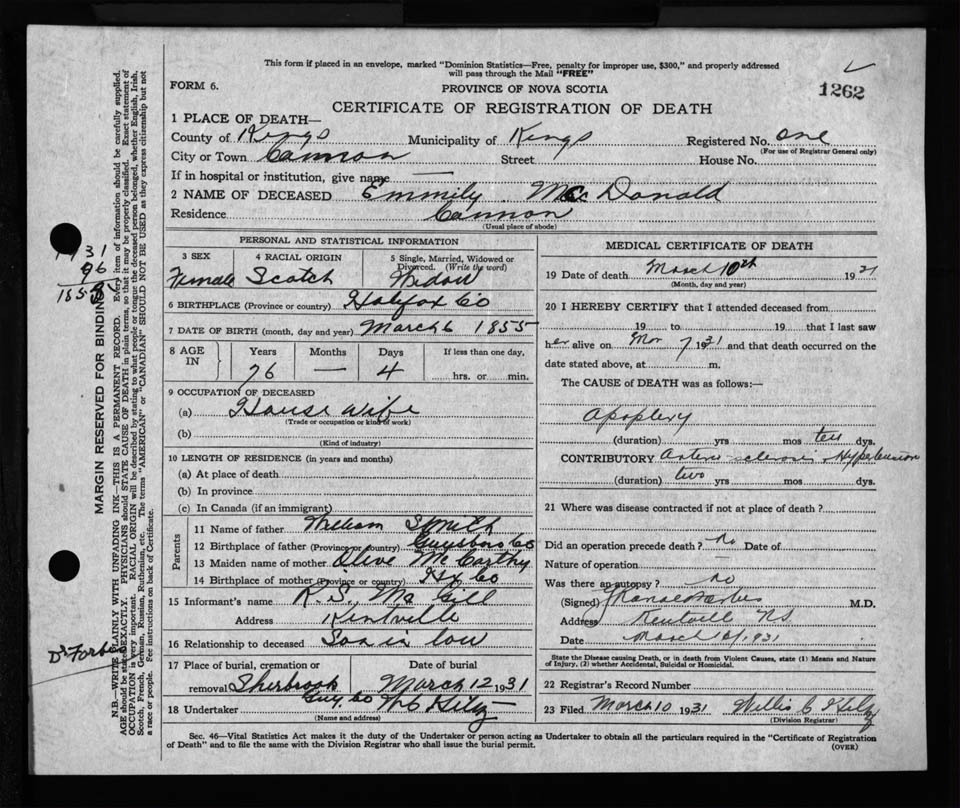 This form if placed in an envelope, marked "Dominion Statistics—Free, penalty for improper use, $300," and properly addressed
will pass through the Mail "FREE"
FORM 6.
PROVINCE OF NOVA SCOTIA
1262
CERTIFICATE OF REGISTRATION OF DEATH
1 PLACE OF DEATH—
County of Kings Municipality of Kings Registered No. one
(For use of Registrar General only)
City or Town Cannon Street House No.
If in hospital or institution, give name —
2 NAME OF DECEASED Emmily McDonald
Residence Cannon
(Usual place of abode)
PERSONAL AND STATISTICAL INFORMATION
3 SEX Female
4 RACIAL ORIGIN Scotch
5 Single, Married, Widowed or
Divorced. (Write the word)
Widow
6 BIRTHPLACE (Province or country) Halifax Co
7 DATE OF BIRTH (month, day and year) March 6 1855
8 AGE IN Years Months Days If less than one day,
76 — 4 hrs. or min.
9 OCCUPATION OF DECEASED
(a) House wife
(Trade or occupation or kind of work)
(b)
(Kind of industry)
10 LENGTH OF RESIDENCE (in years and months)
(a) At place of death
(b) In province
(c) In Canada (if an immigrant)
Parents
11 Name of father William Smith
12 Birthplace of father (Province or country) Guysboro Co
13 Maiden name of mother Olive McCarthy
14 Birthplace of mother (Province or country) Hx Co
15 Informant's name R. S. McGill
Address Kentville
16 Relationship to deceased Son in law
17 Place of burial, cremation or Date of burial
removal Sherbrook March 12 1931
Guy. Co
18 Undertaker
(Name and address)
MEDICAL CERTIFICATE OF DEATH
19 Date of death March 10th 1931
(Month, day and year)
20 I HEREBY CERTIFY that I attended deceased from
19 to 19 that I last saw
her alive on Mar 7 1931 and that death occurred on the
date stated above, at m.
The CAUSE of DEATH was as follows:—
Apoplexy
(duration) yrs mos ten dys.
CONTRIBUTORY Arterio sclerosis Hypertension
(duration) two yrs mos dys.
21 Where was disease contracted if not at place of death?
Did an operation precede death? No Date of
Nature of operation
Was there an autopsy? no
(Signed) M.D.
Address Kentville N.S.
Date March 1931
State the Disease causing Death, or in death from Violent Causes, state (1) Means and Nature
of Injury, (2) whether Accidental, Suicidal or Homicidal.
22 Registrar's Record Number
23 Filed March 10 1931 Willis C
(Division Registrar)
Sec. 46—Vital Statistics Act makes it the duty of the Undertaker or person acting as Undertaker to obtain all the particulars required in the "Certificate of Registration
of Death" and to file the same with the Division Registrar who shall issue the burial permit.
(OVER)
MARGIN RESERVED FOR BINDING
N.B.—WRITE PLAINLY WITH UNFADING INK—THIS IS A PERMANENT RECORD. Every item of information should be carefully supplied.
AGE should be stated EXACTLY. PHYSICIANS should STATE CAUSE OF DEATH in plain terms, so that it may be properly classified. Exact statement of
OCCUPATION is very important. RACIAL ORIGIN will be described by stating to what people or tongue the deceased person belonged, whether English, Irish,
Scotch, French, German, Russian, Ruthenian, etc. The terms "AMERICAN" or "CANADIAN" SHOULD NOT BE USED as they express citizenship but not
a race or people. Fee instructions on back of Certificate.
Dr Forbes